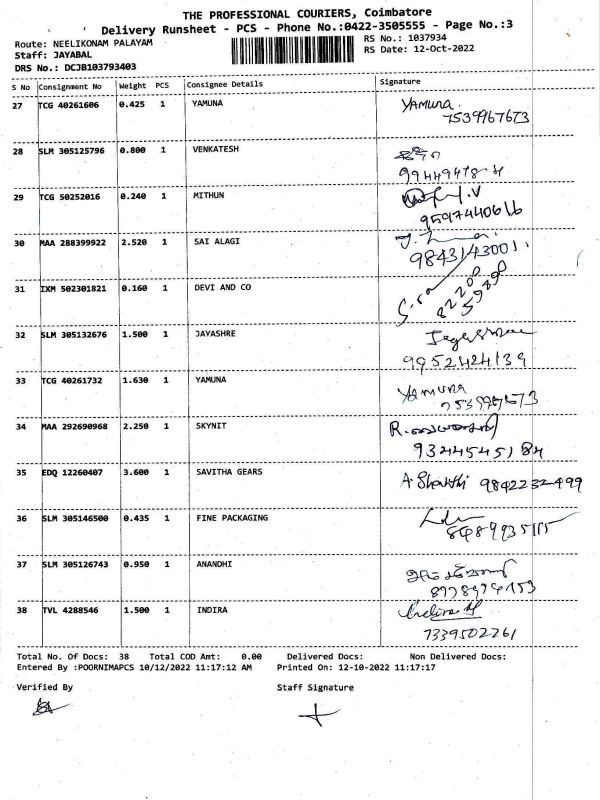 THE PROFESSIONAL COURIERS, Coimbatore
Delivery Runsheet - PCS - Phone No.:0422-3505555 - Page No.:3
Route: NEELIKONAM PALAYAM
RS No.: 1037934
Staff: JAYABAL
RS Date: 12-Oct-2022
DRS No.: DCJB103793403
S No Consignment No Weight PCS Consignee Details Signature
27 TCG 40261606 0.425 1 YAMUNA YAMUNA.
7539967673
28 SLM 305125796 0.800 1 VENKATESH
29 TCG 50252016 0.240 1 MITHUN
9597440616
30 MAA 288399922 2.520 1 SAI ALAGI
9843143001.
31 IXM 502301821 0.160 1 DEVI AND CO
32 SLM 305132676 1.500 1 JAYASHRE
9952424139
33 TCG 40261732 1.630 1 YAMUNA YAMUNA
34 MAA 292690968 2.250 1 SKYNIT
9344545184
35 EDQ 12260407 3.600 1 SAVITHA GEARS A. Shakthi 9842232499
36 SLM 305146500 0.435 1 FINE PACKAGING
37 SLM 305126743 0.950 1 ANANDHI
38 TVL 4288546 1.500 1 INDIRA
7339502261
Total No. Of Docs: 38 Total COD Amt: 0.00 Delivered Docs: Non Delivered Docs:
Entered By :POORNIMAPCS 10/12/2022 11:17:12 AM Printed On: 12-10-2022 11:17:17
Verified By Staff Signature